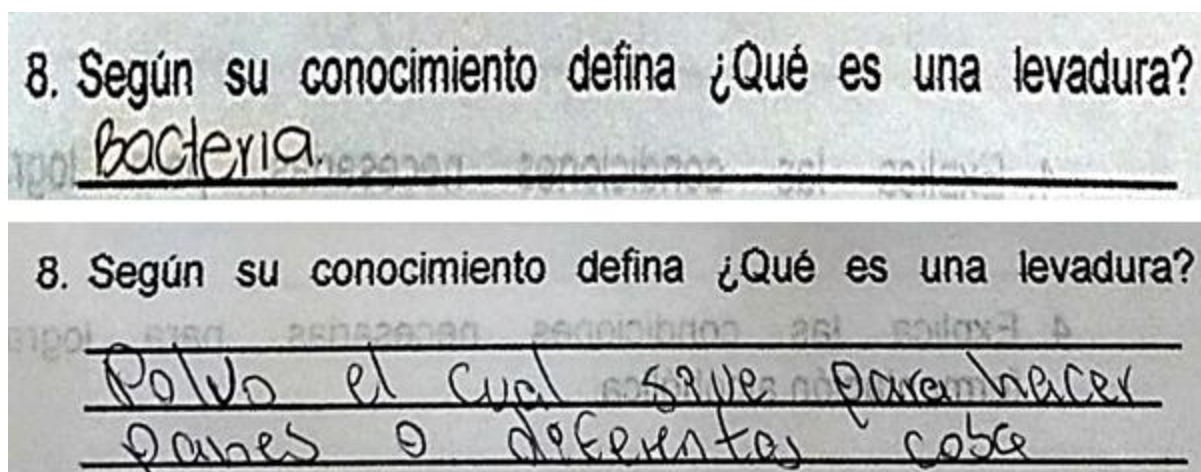 8. Según su conocimiento defina ¿Qué es una levadura?
Bacteria.
8. Según su conocimiento defina ¿Qué es una levadura?
Polvo el cual sirve para hacer
panes o diferentes